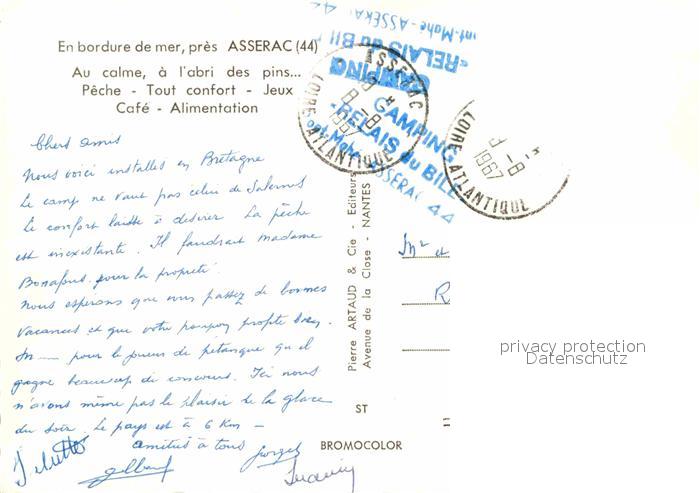 En bordure de mer, près ASSERAC (44)
Au calme, à l'abri des pins...
Pêche - Tout confort - Jeux
Café - Alimentation
CAMPING
"RELAIS du BILE"
Pont-Mahé - ASSERAC 44
ASSERAC
LOIRE-ATLANTIQUE
8-8
1967
CAMPING
"RELAIS du BILE"
Pont-Mahé ASSERAC 44
LOIRE-ATLANTIQUE
-8
1967
Chers amis
Nous voici installés en Bretagne
Le camp ne vaut pas celui de Salernes
Le confort laisse à désirer La pêche
est inexistante. Il faudrait madame
pour la propreté.
Nous espérons que vous passez de bonnes
vacances et que votre poupon profite bien.
pour le joueur de pétanque qu'il
gagne beaucoup de concours. Ici nous
n'avons même pas le plaisir de la glace
du soir. Le pays est à 6 km -
amitiés à tous
Juliette
Gilbert
Georges
Pierre ARTAUD & Cie - Editeurs
Avenue de la Close - NANTES
ST
11
BROMOCOLOR
Mr et
R
privacy protection
Datenschutz